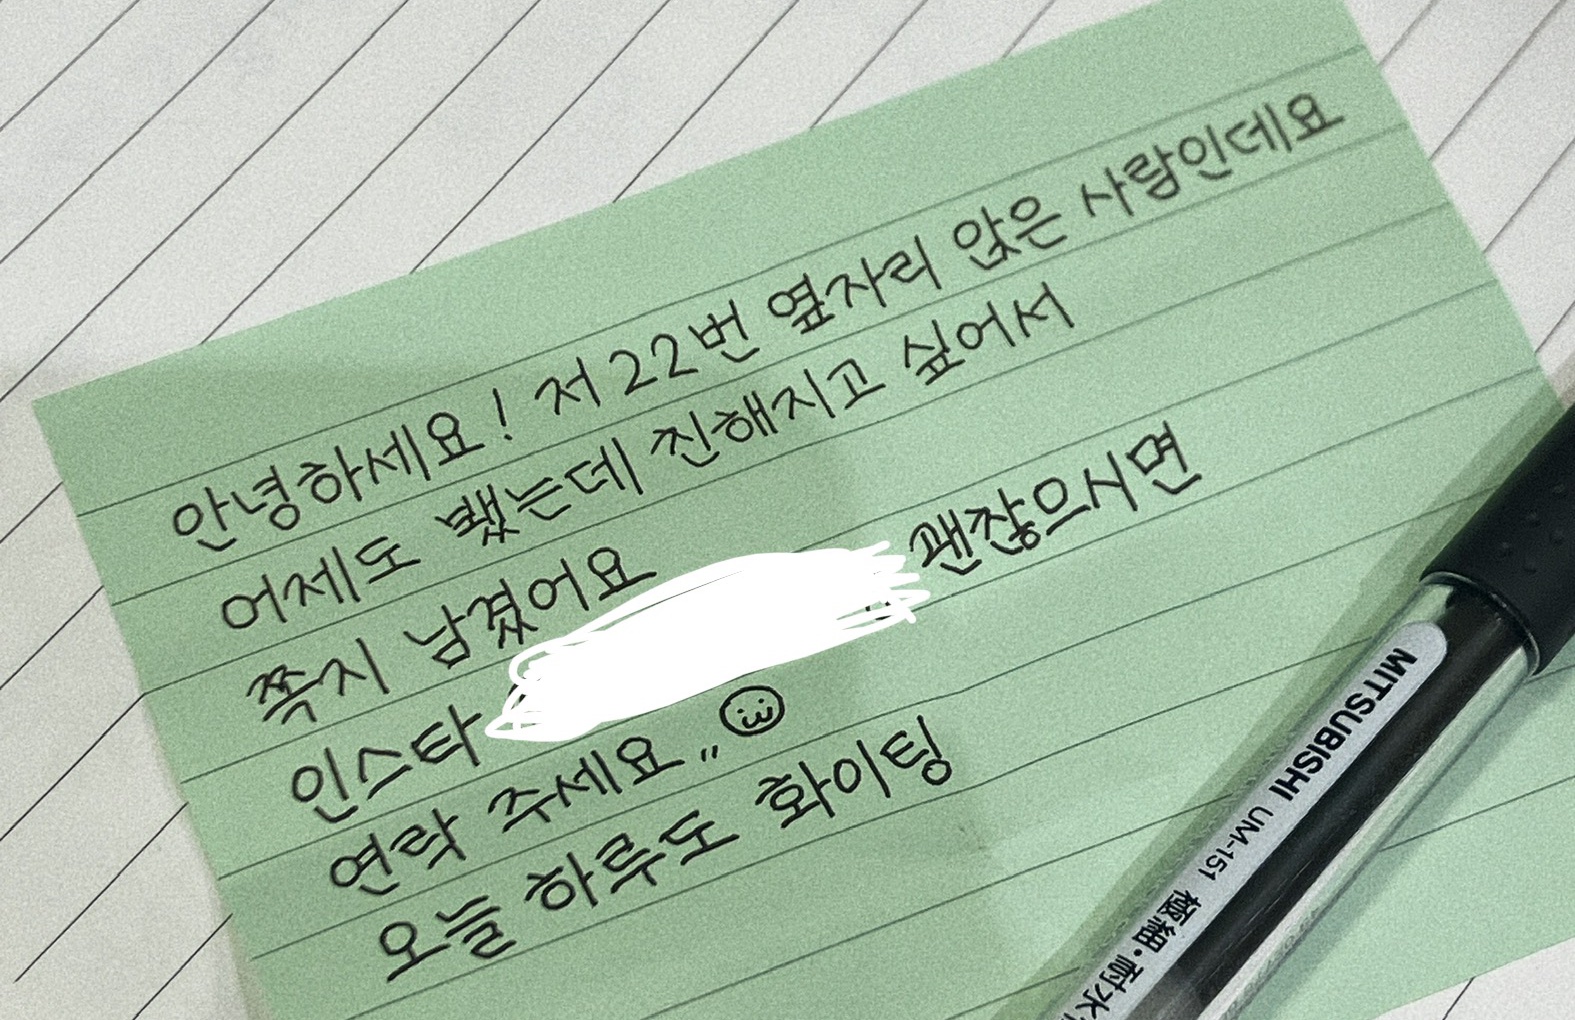 안녕하세요! 저 22번 옆자리 앉은 사람인데요
어제도 뵀는데 친해지고 싶어서
쪽지 남겼어요
인스타 괜찮으시면
연락 주세요,,
오늘 하루도 화이팅
MITSUBISHI UM-151 極細・耐水